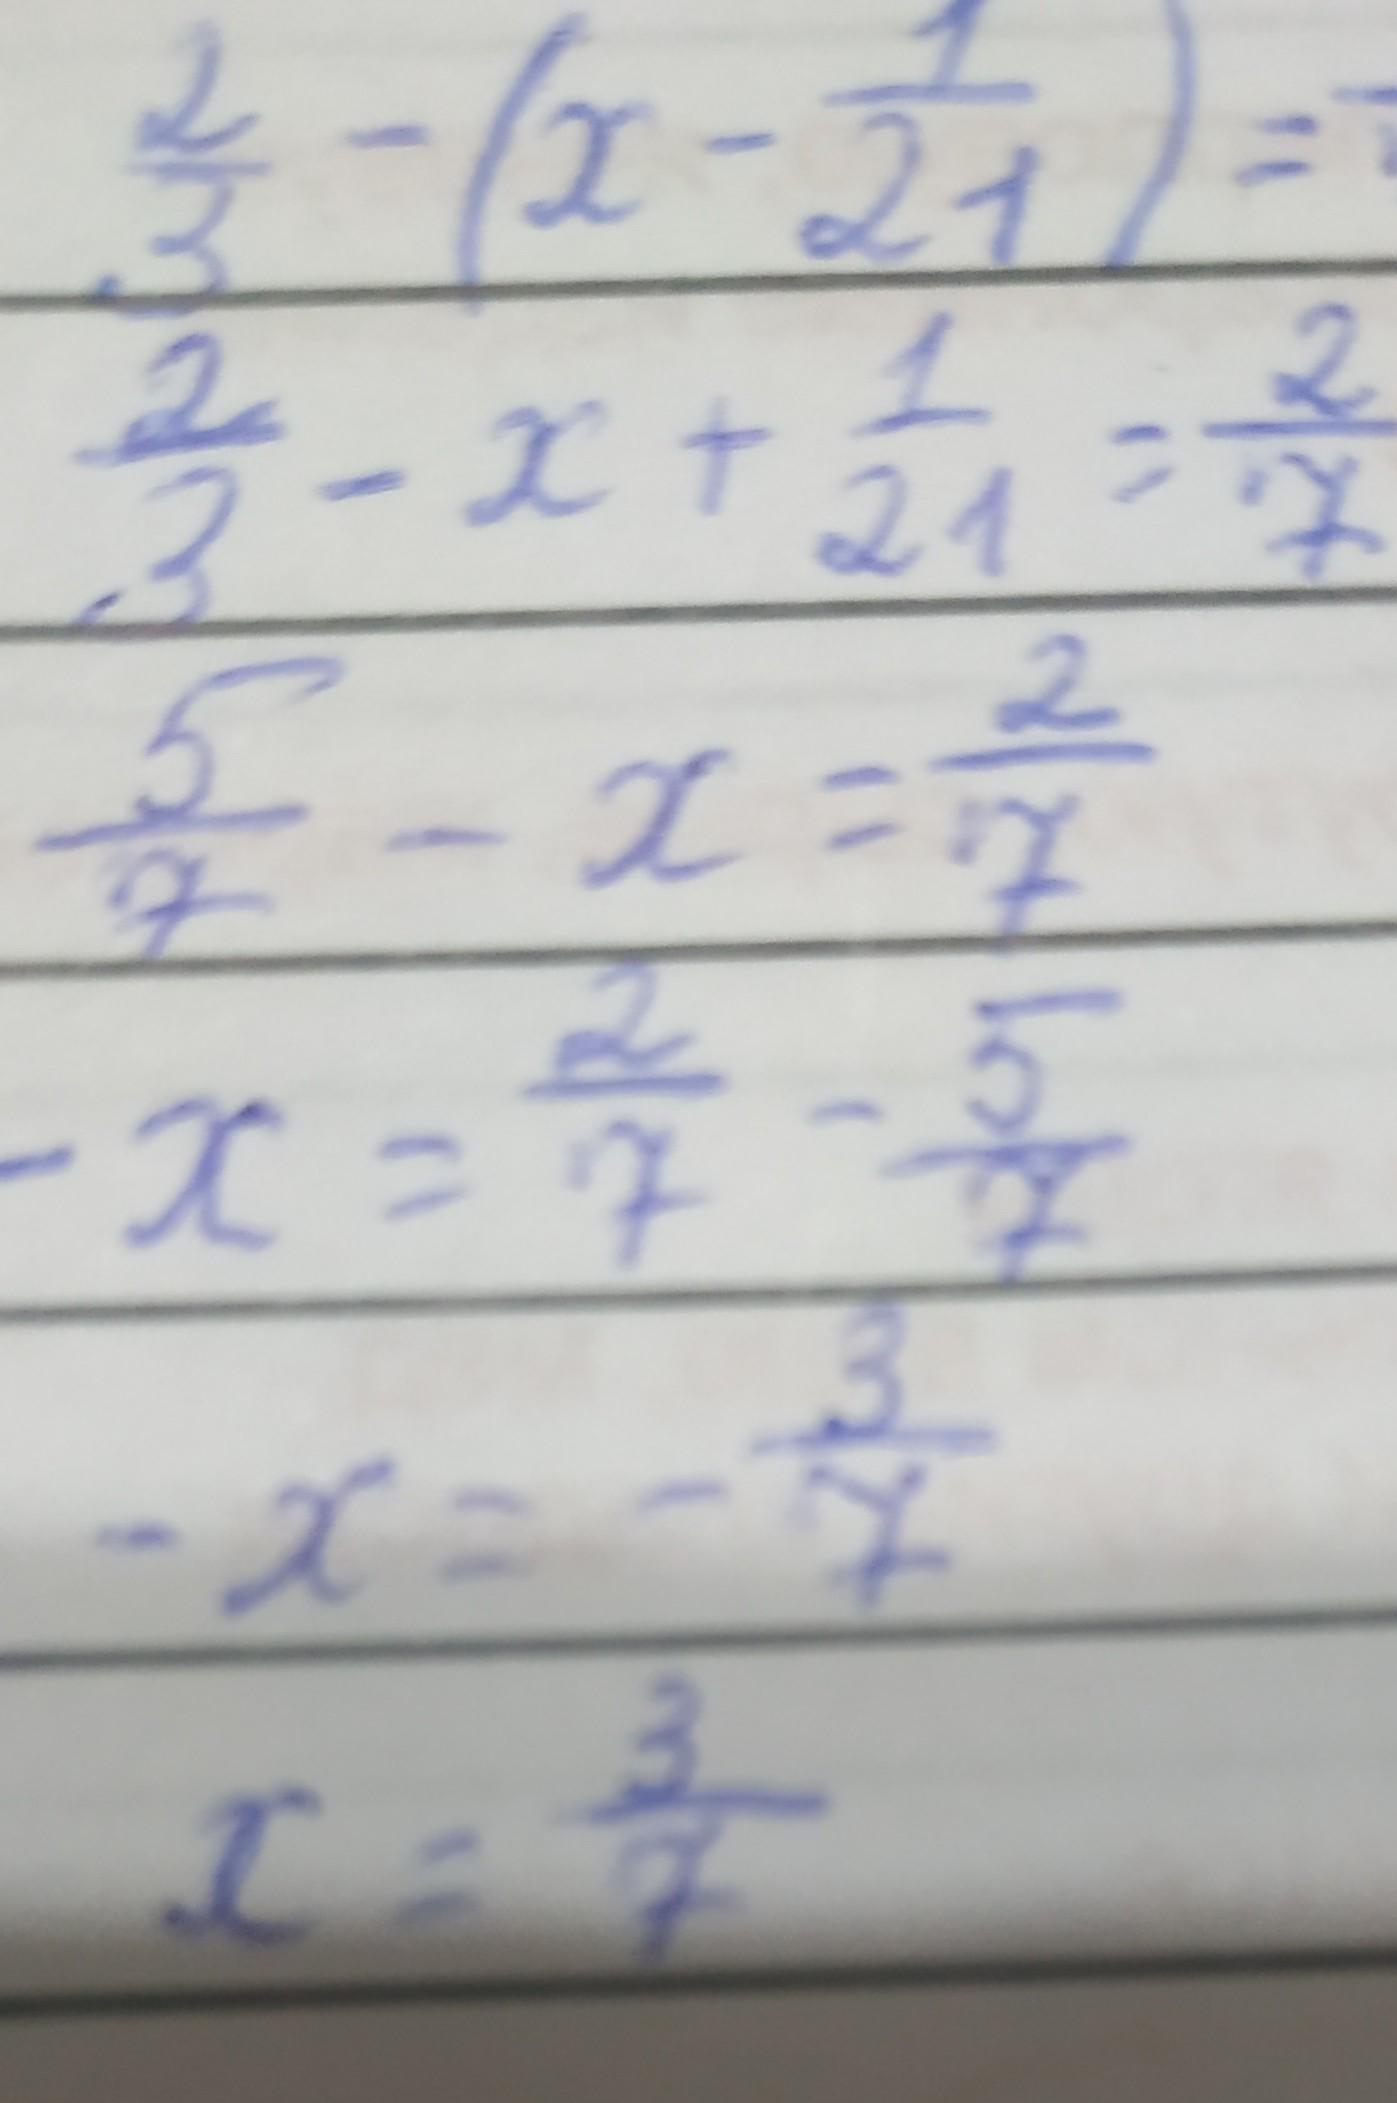 2/3 - (x - 1/21) =
2/3 - x + 1/21 = 2/7
5/7 - x = 2/7
- x = 2/7 - 5/7
- x = - 3/7
x = 3/7